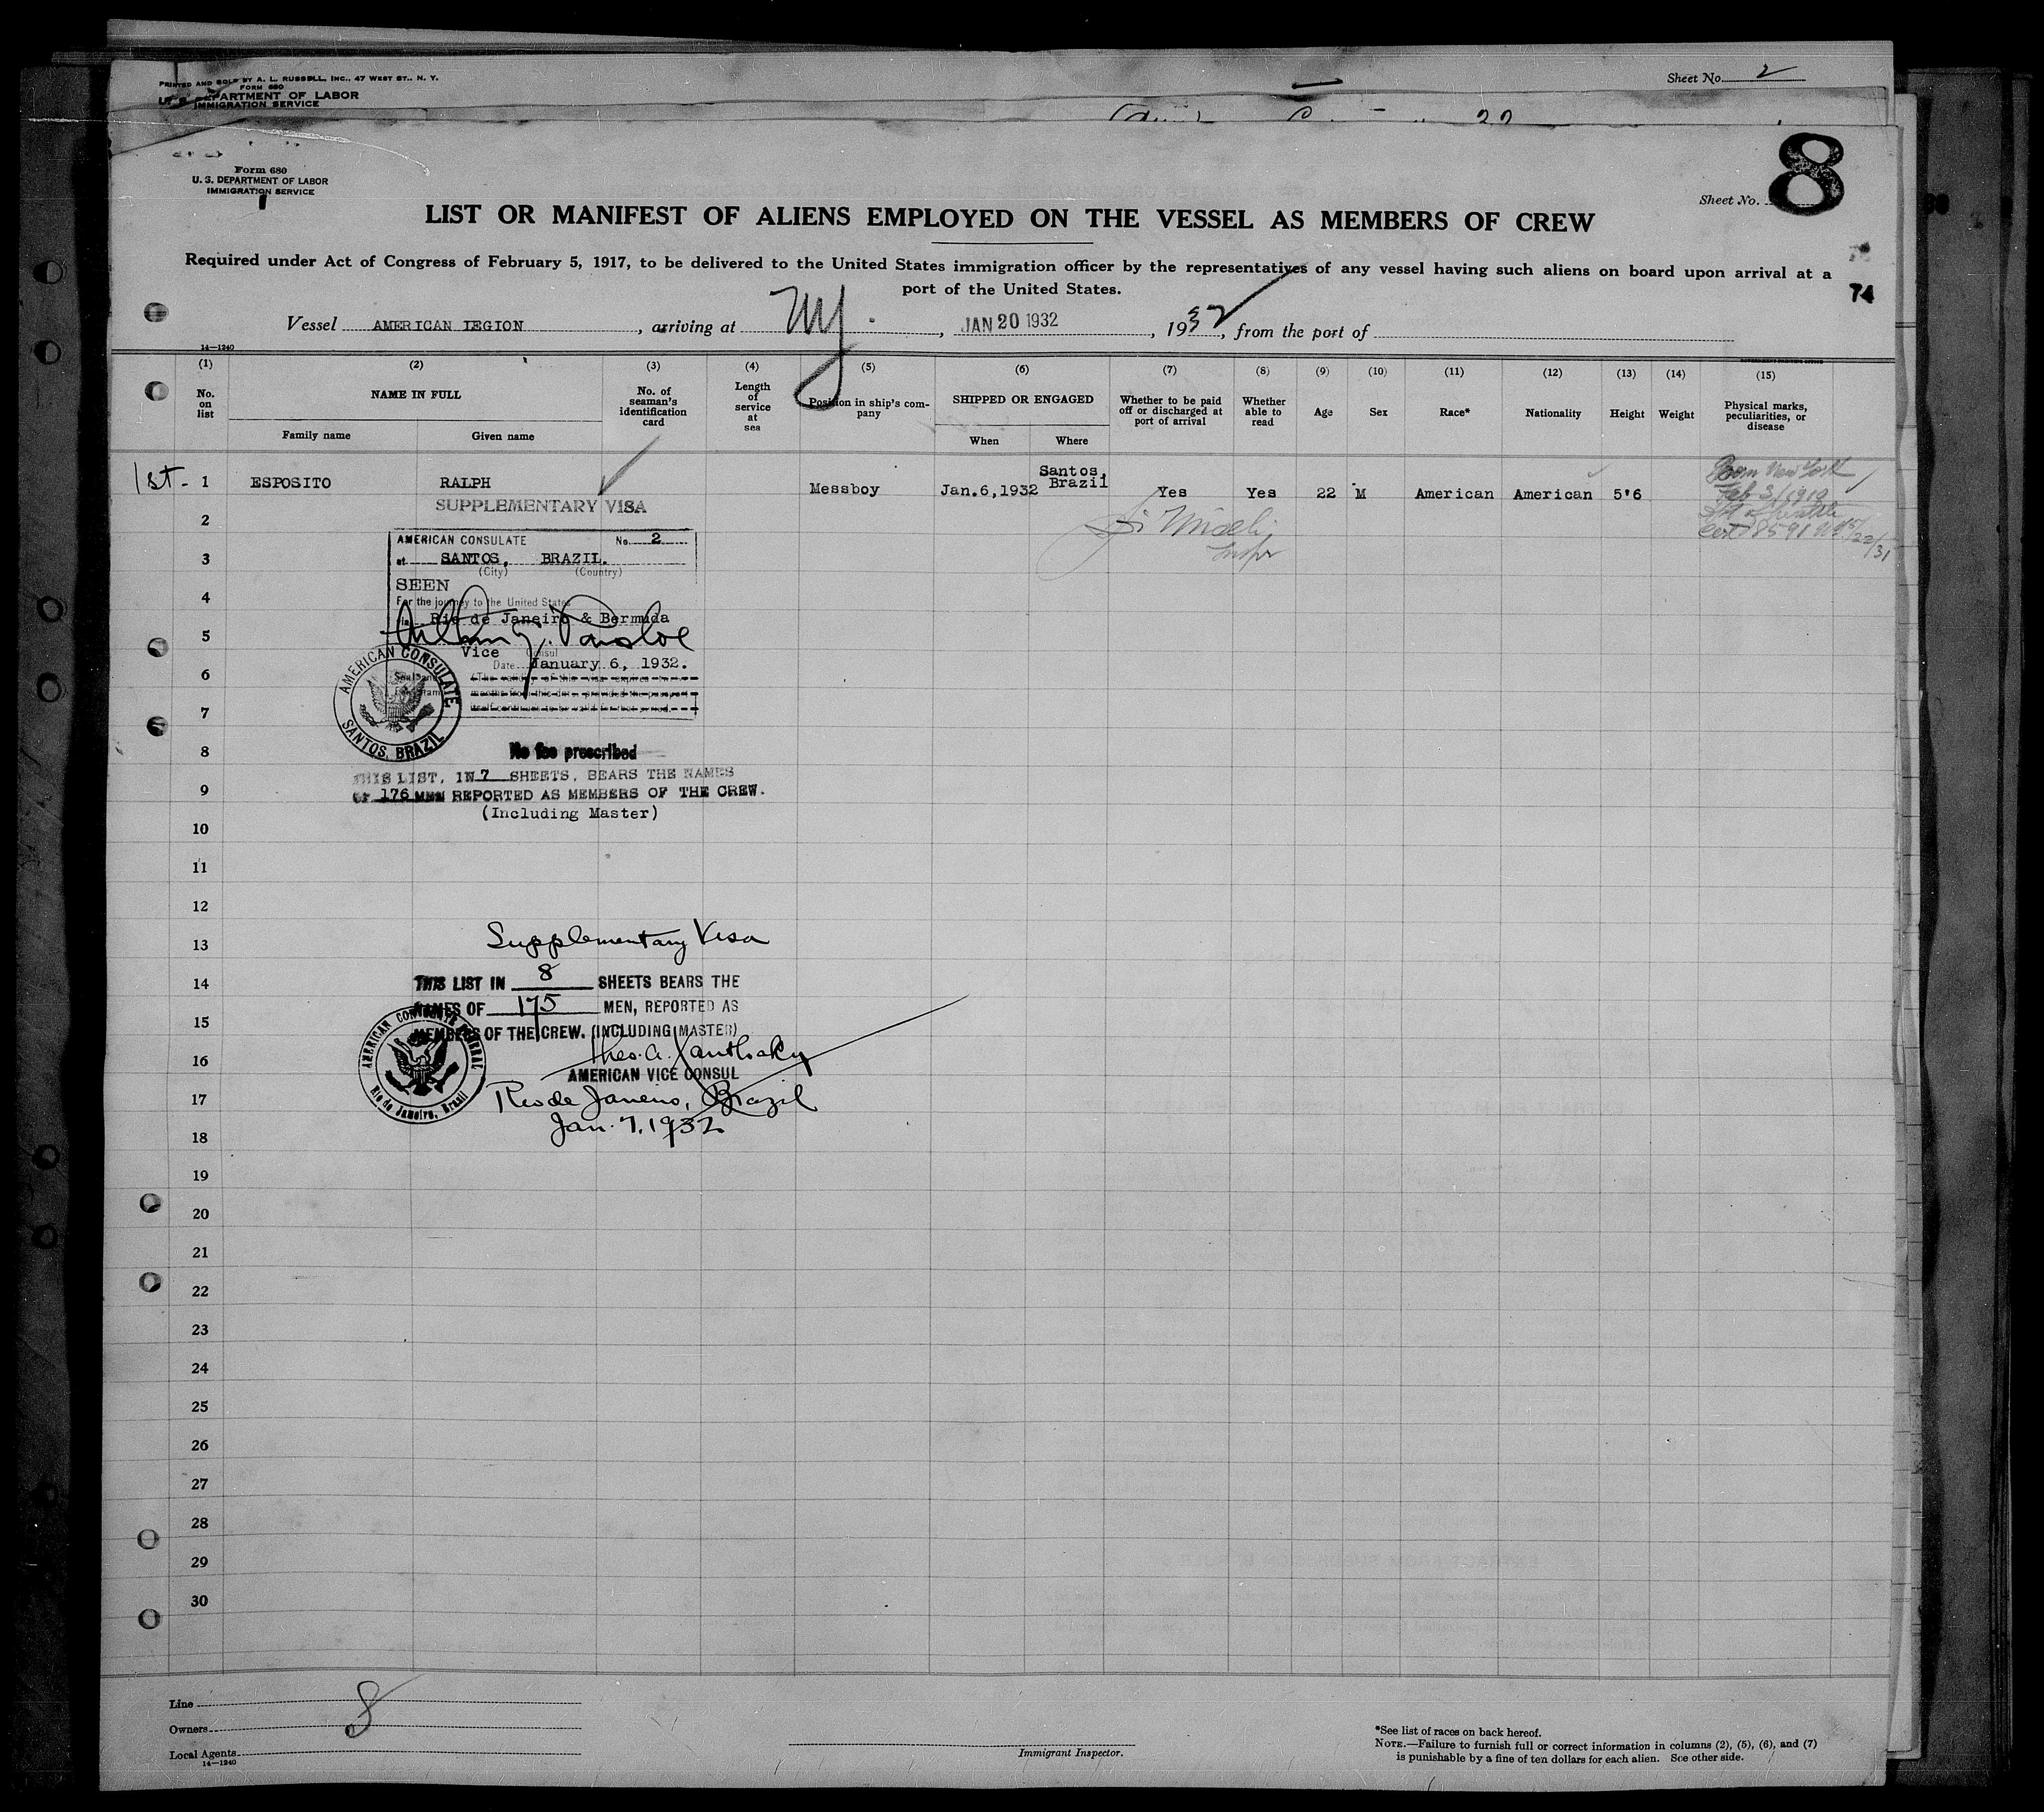 PRINTED AND SOLD BY A. L. RUSSELL, INC., 47 WEST ST., N. Y.
FORM 680
U. S. DEPARTMENT OF LABOR
IMMIGRATION SERVICE
Sheet No. 2
Form 680
U. S. DEPARTMENT OF LABOR
IMMIGRATION SERVICE
Sheet No. 8
LIST OR MANIFEST OF ALIENS EMPLOYED ON THE VESSEL AS MEMBERS OF CREW
Required under Act of Congress of February 5, 1917, to be delivered to the United States immigration officer by the representatives of any vessel having such aliens on board upon arrival at a
port of the United States.
74
Vessel AMERICAN LEGION, arriving at NY., JAN 20 1932, 1932, from the port of
14—1240
(1) (2) (3) (4) (5) (6) (7) (8) (9) (10) (11) (12) (13) (14) (15)
No. on list
NAME IN FULL
Family name
Given name
No. of seaman's identification card
Length of service at sea
Position in ship's company
SHIPPED OR ENGAGED
When
Where
Whether to be paid off or discharged at port of arrival
Whether able to read
Age
Sex
Race*
Nationality
Height
Weight
Physical marks, peculiarities, or disease
1st- 1 ESPOSITO RALPH Messboy Jan.6,1932 Santos, Brazil Yes Yes 22 M American American 5'6
Born New York
Feb 3/1910
Cert 8591
5/22/31
SUPPLEMENTARY VISA
Inspr
2
AMERICAN CONSULATE No. 2
3
at SANTOS, BRAZIL.
(City) (Country)
SEEN
4
For the journey to the United States
via Rio de Janeiro & Bermuda
5
Vice Consul
Date January 6, 1932.
6
7
AMERICAN CONSULATE
SANTOS, BRAZIL
8
No fee prescribed
THIS LIST, IN 7 SHEETS, BEARS THE NAMES
9
OF 176 MEN REPORTED AS MEMBERS OF THE CREW.
(Including Master)
10
11
12
13
Supplementary Visa
14
THIS LIST IN 8 SHEETS BEARS THE
NAMES OF 175 MEN, REPORTED AS
15
MEMBERS OF THE CREW. (INCLUDING MASTER)
16
Theo. A. Xanthaky
AMERICAN VICE CONSUL
17
Rio de Janeiro, Brazil
Jan. 7, 1932
AMERICAN CONSULATE GENERAL
Rio de Janeiro, Brazil
18
19
20
21
22
23
24
25
26
27
28
29
30
Line
8
Owners
Local Agents
14—1240
Immigrant Inspector.
*See list of races on back hereof.
NOTE.—Failure to furnish full or correct information in columns (2), (5), (6), and (7)
is punishable by a fine of ten dollars for each alien. See other side.